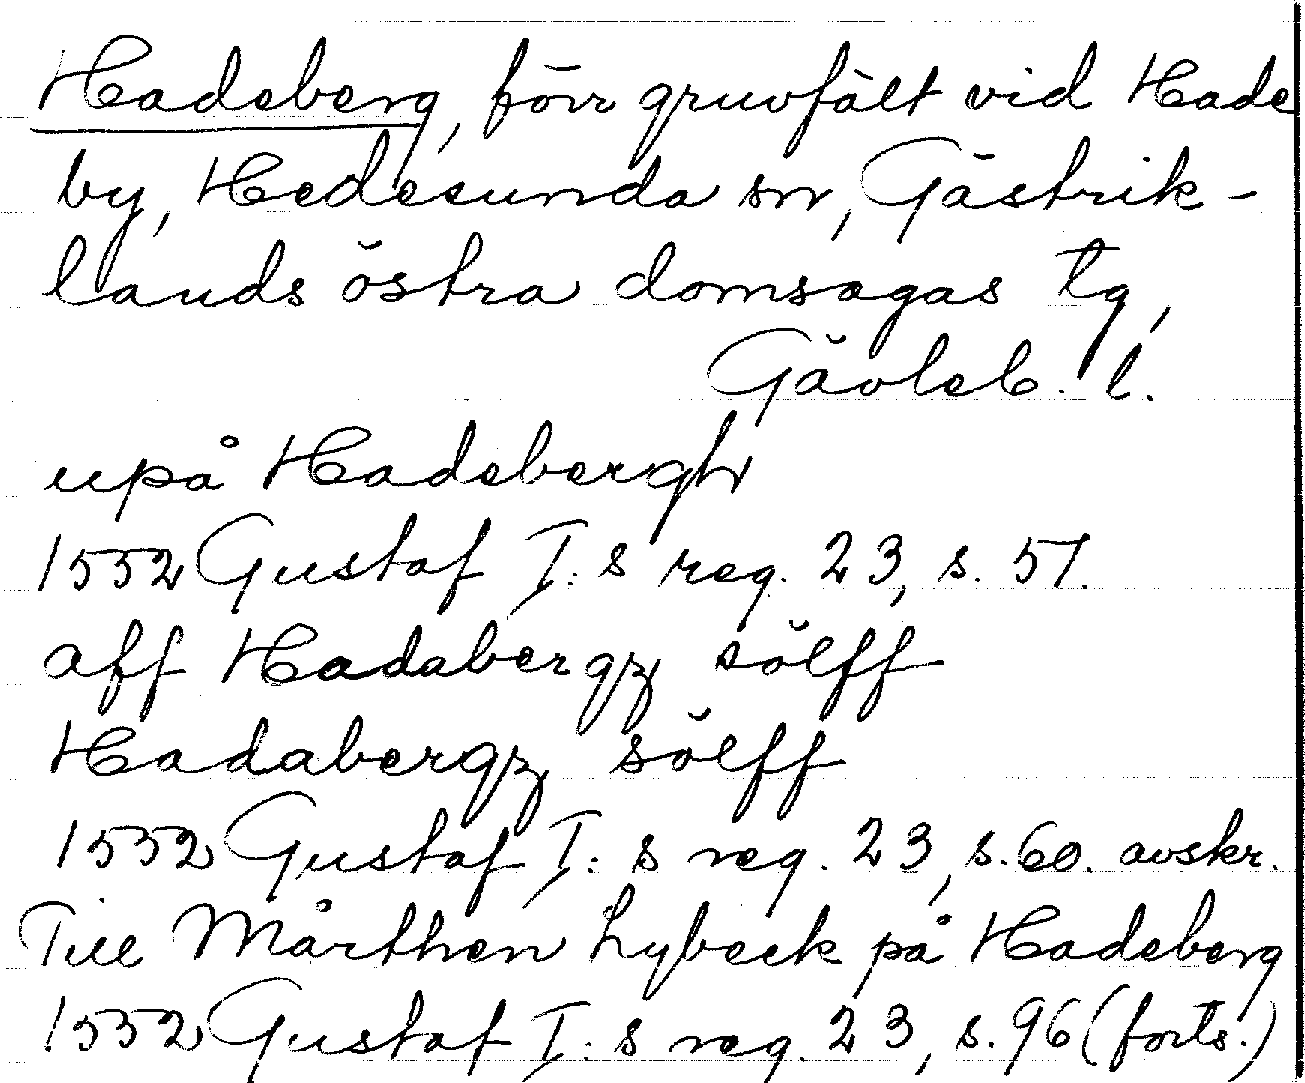 Hadeberg, förr gruvfält vid Hade
by, Hedesunda sn, Gästrik-
lands östra domsagas tg,
Gävleb. l.
upå Hadebergh
1552 Gustaf I: s reg. 23, s. 51.
aff Hadabergz sölff
Hadabergz sölff
1552 Gustaf I: s reg. 23, s. 60. avskr.
Till Mårthen Lybeck på Hadeberg
1552 Gustaf I: s reg. 23, s. 96 (forts.)